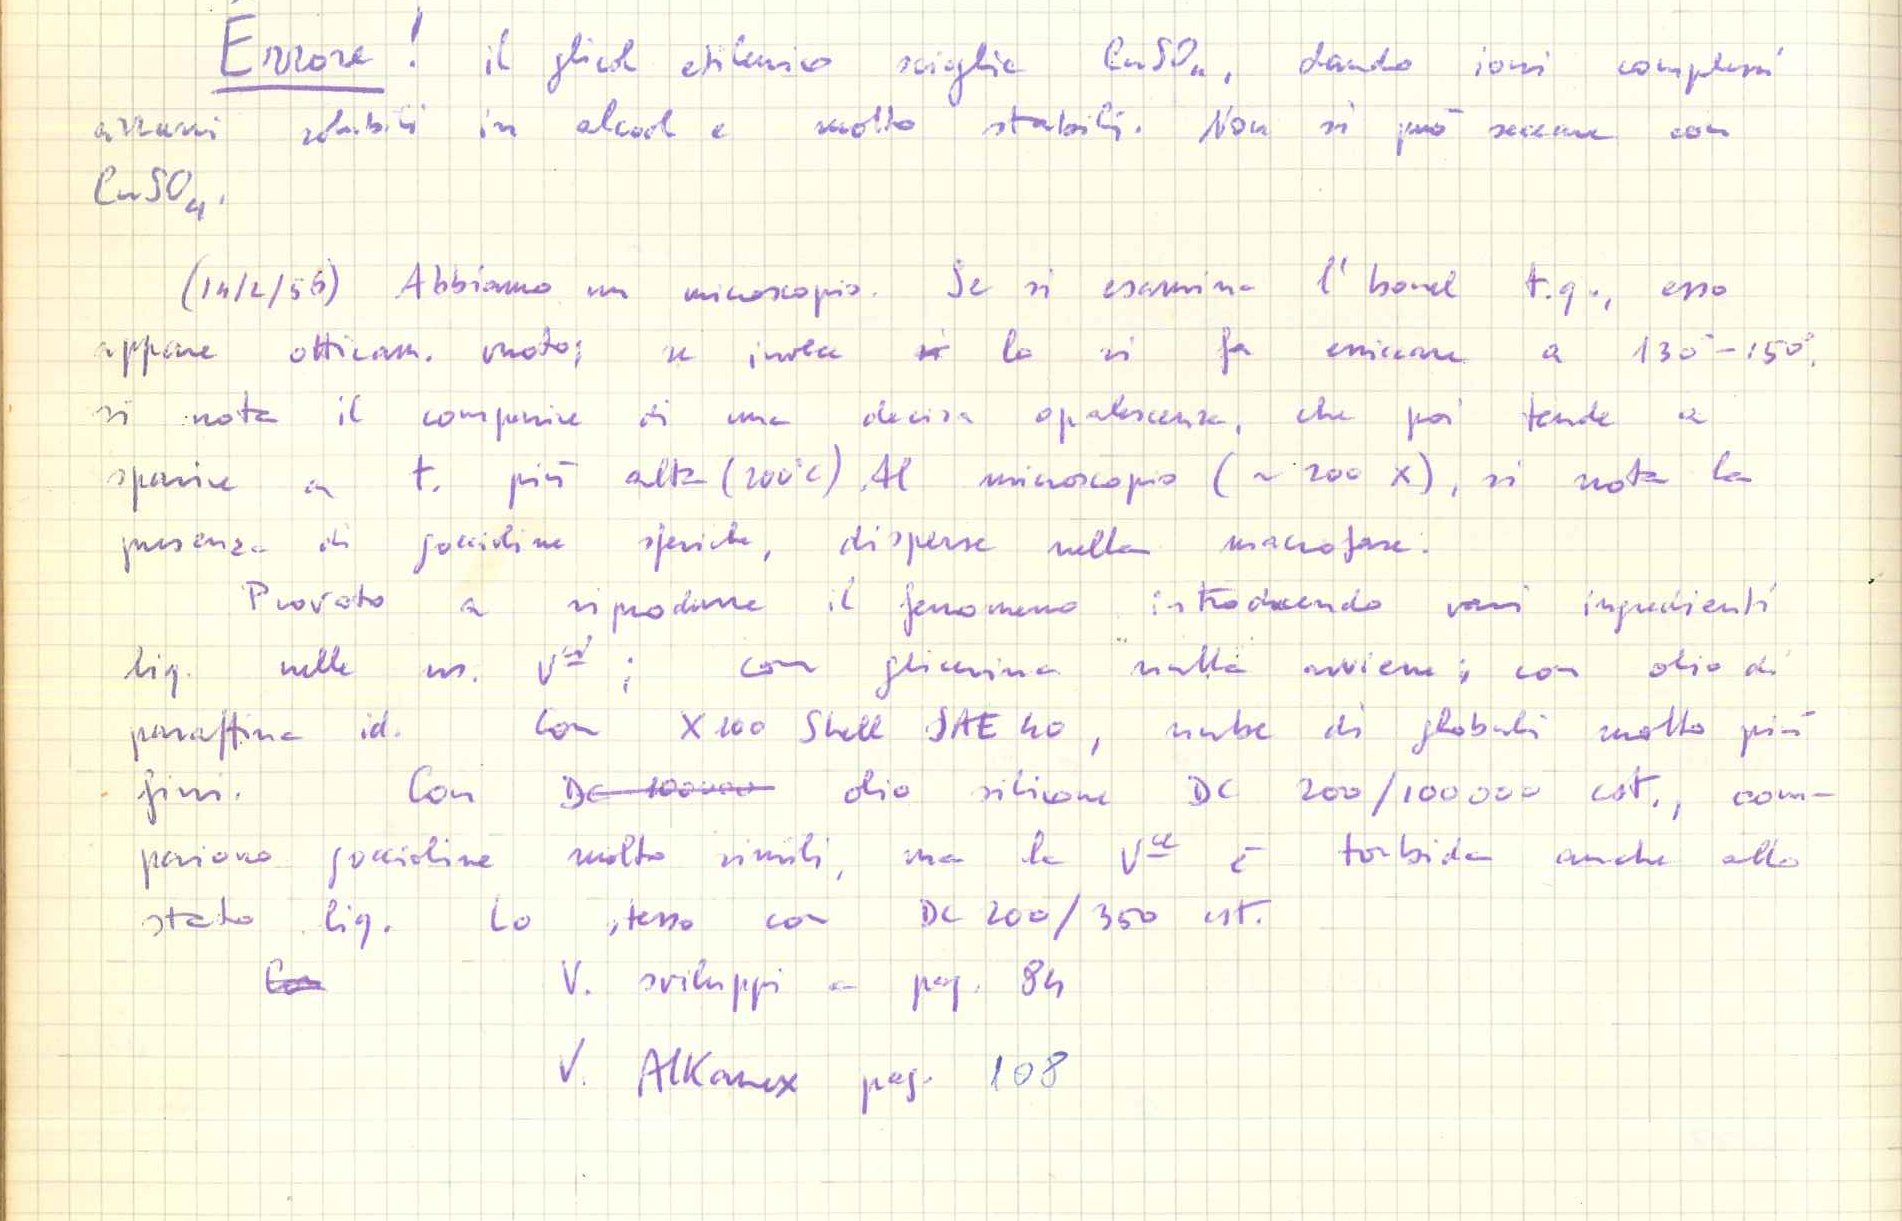 Errore! il glicol etilenico scioglie CuSO4, dando ioni complessi
azzurri solubili in alcool e molto stabili. Non si può seccare con
CuSO4.
(14/2/56) Abbiamo un microscopio. Se si esamina l'Isonel t.q., esso
appare otticam. vuoto; se invece si lo si fa essiccare a 130°-150°,
si nota il comparire di una decisa opalescenza, che poi tende a
sparire a t. più alta (200°C). Al microscopio (~200 X), si nota la
presenza di goccioline sferiche, disperse nella macrofase.
Provato a riprodurre il fenomeno introducendo vari ingredienti
liq. nelle ns. Vci; con glicerina nulla avviene; con olio di
paraffina id. Con X100 Shell SAE 40, nube di globuli molto più
fini. Con DC 100000 olio silicone DC 200/100000 cst., com-
pariono goccioline molto simili, ma la Vce è torbida anche allo
stato liq. Lo stesso con DC 200/350 cst.
Con V. sviluppi a pag. 84
V. Alkanex pag. 108